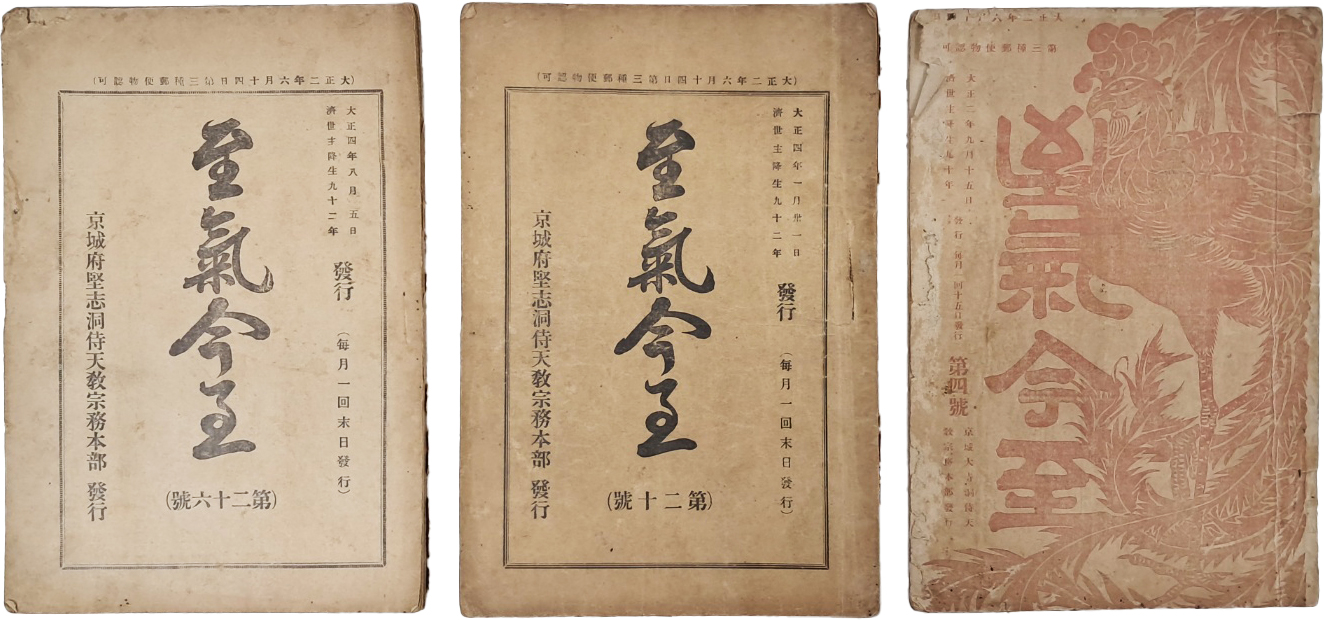 (大正二年六月十四日第三種郵便物認可)
大正四年八月五日
濟世主降生九十二年
發行
(每月一回末日發行)
至氣今至
(第二十六號)
京城府堅志洞侍天敎宗務本部 發行
(大正二年六月十四日第三種郵便物認可)
大正四年一月卅一日
濟世主降生九十二年
發行
(每月一回末日發行)
至氣今至
(第二十號)
京城府堅志洞侍天敎宗務本部 發行
大正二年六
第三種郵便物認可
至氣今至
大正二年九月十五日
濟世主降生九十年
發行 每月一回十五日發行
第四號
京城大寺洞侍天
敎宗務本部發行